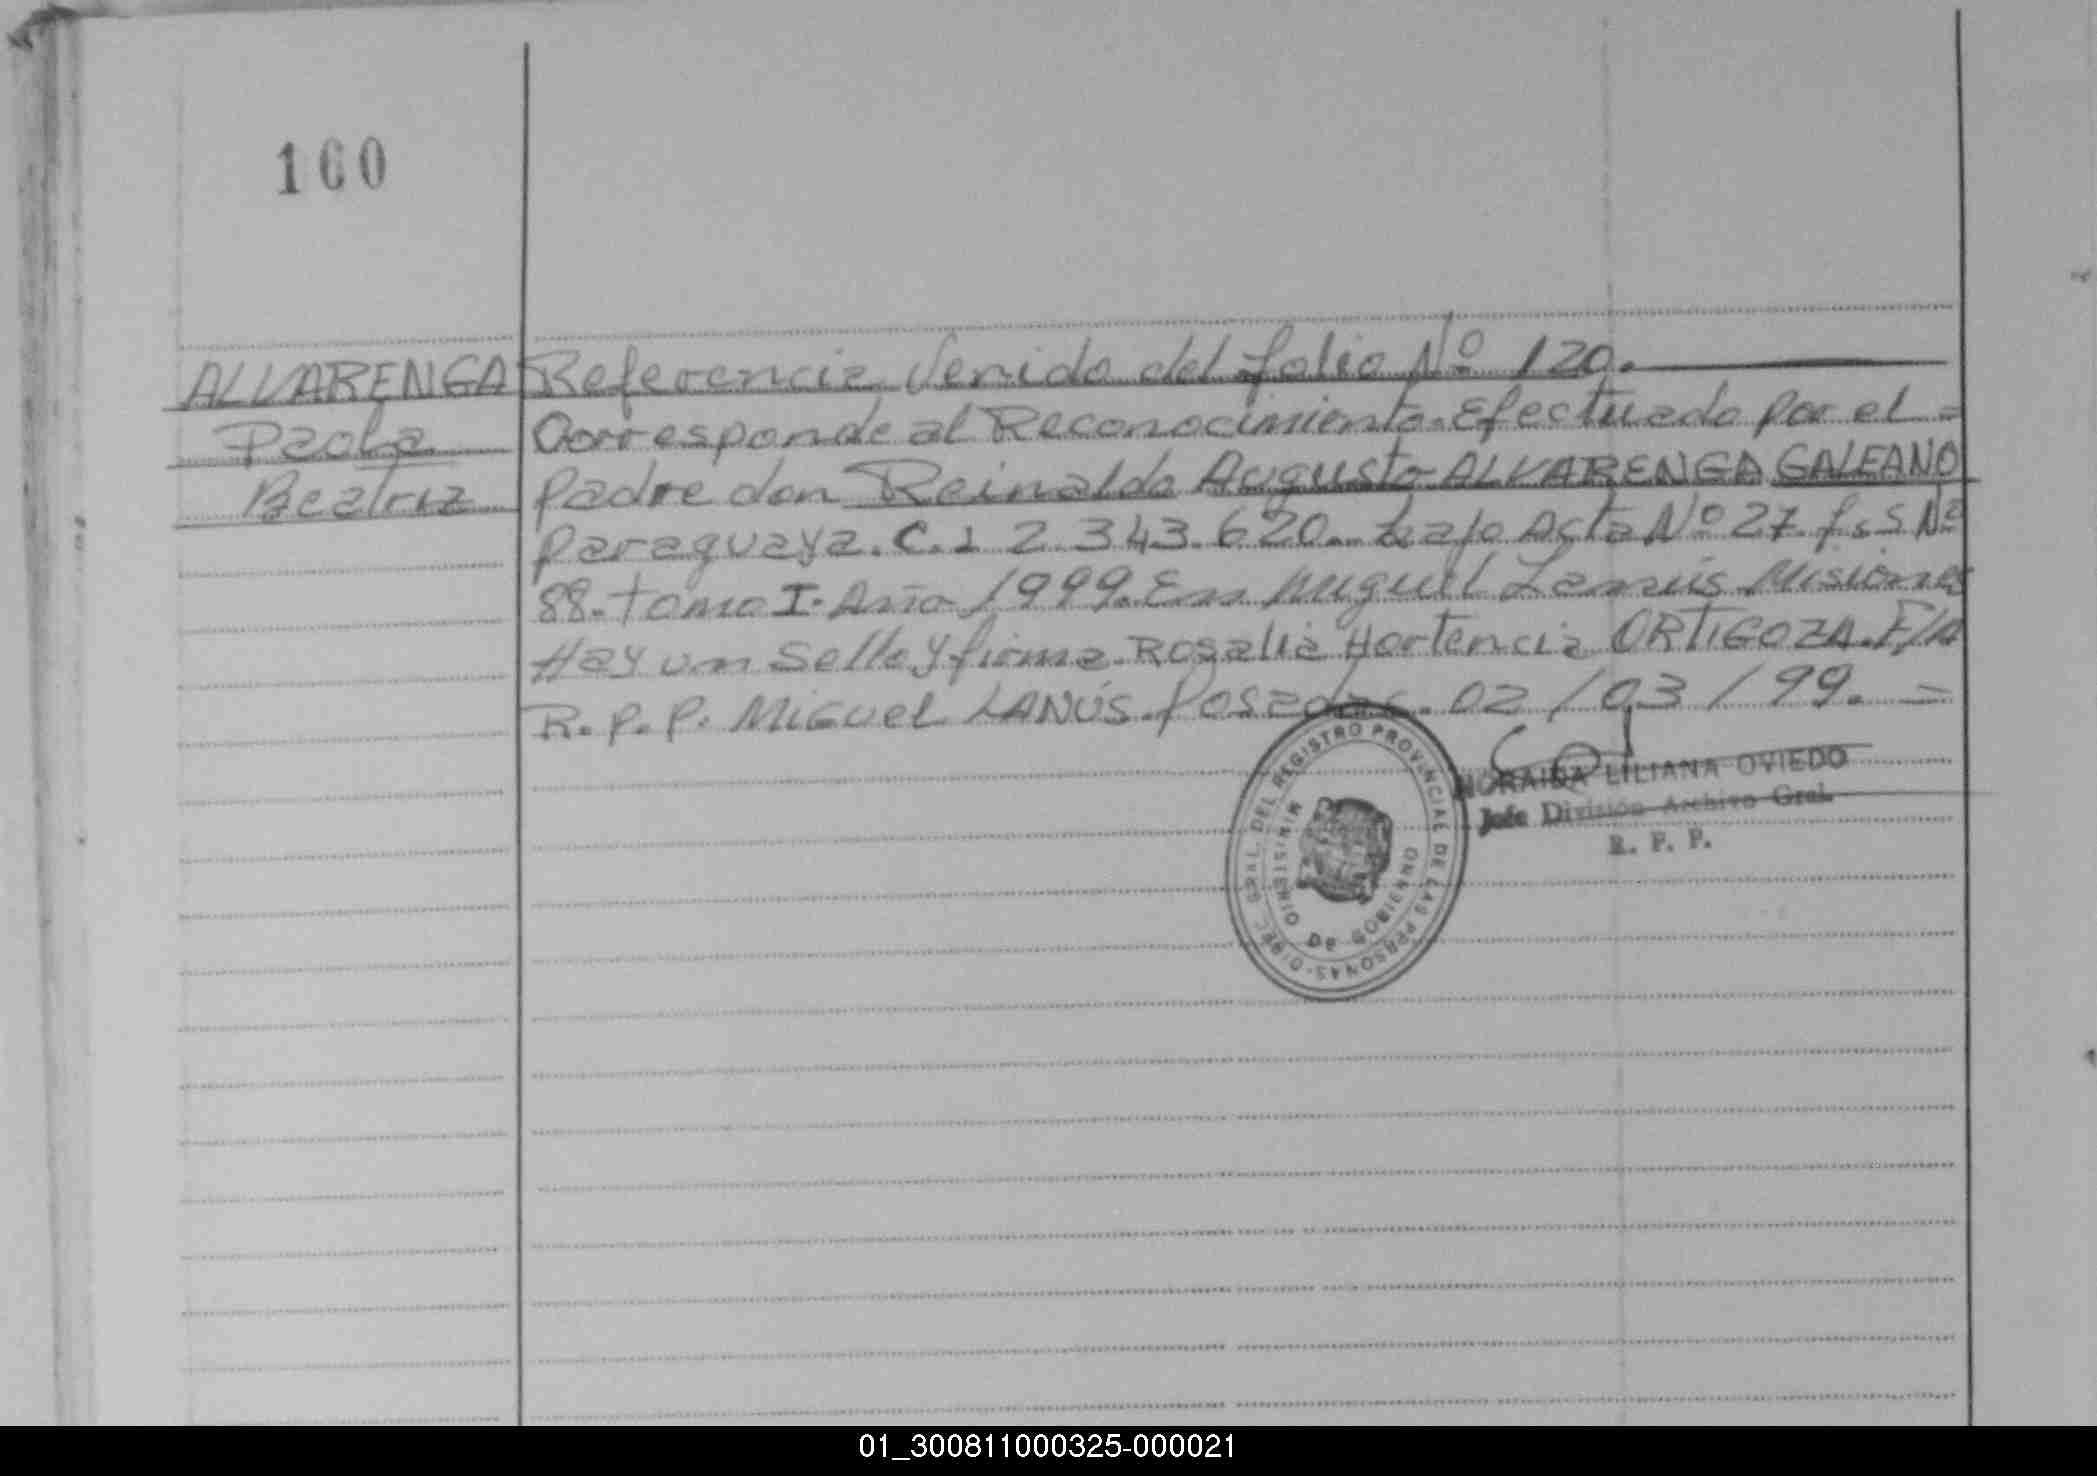 160
ALVARENGA
Paola
Beatriz
Referencia Venida del folio Nº 120.
Corresponde al Reconocimiento Efectuado por el =
padre don Reinaldo Augusto ALVARENGA GALEANO
paraguaya. C.I 2.343.620. bajo Acta Nº 27. fs. S Nº
88. tomo I. Año 1999. En Miguel Lanús Misiones
Hay un Sello y firma. Rosalia Hortencia ORTIGOZA. E/A
R.P.P. Miguel LANÚS. Posadas. 02/03/99. =
NORAIDA LILIANA OVIEDO
Jefe División Archivo Gral.
R. P. P.
DIREC. GRAL. DEL REGISTRO PROVINCIAL DE LAS PERSONAS
MINISTERIO DE GOBIERNO
01_300811000325-000021